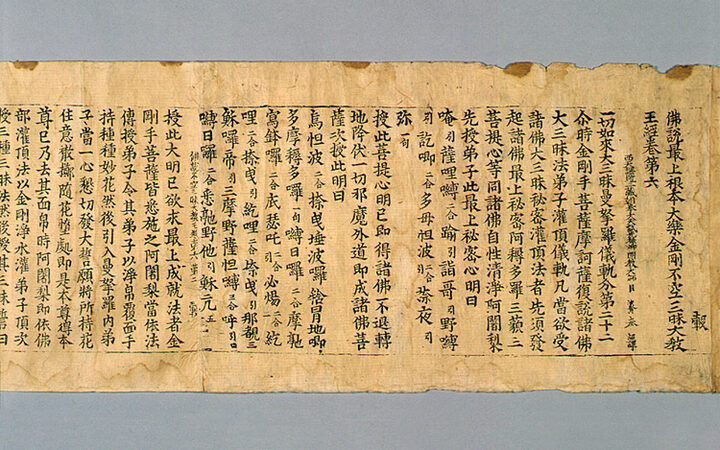 轂
佛說最上根本大樂金剛不空三昧大教
王經卷第六
一切如來大三昧曼拏羅儀軌分第二十二
尒時金剛手菩薩摩訶薩復說諸佛
大三昧法弟子灌頂儀軌凡當欲受
諸佛大三昧秘密灌頂法者先須發
起諸佛最上秘密阿耨多羅三藐三
菩提心等同諸佛自性清淨阿闍梨
先授弟子此最上秘密心明曰
唵引薩哩嚩二合踰引誐哥引野嚩
引訖唧二合多母怛波二合捺夜引
弥一句
授此菩提心明已即得諸佛不退轉
地降伏一切邪魔外道即成諸佛菩
薩次授此明曰
烏怛波二合捺曳埵波囉冒地唧
多摩耨多囉一句嚩日囉二合摩
窩鉢囉二合衣瑟吒引二合必焬二合紇
哩二合捺曳引紇哩二合捺曳引那覩三
穌囉帝引三摩野薩怛嚩二合呼引四
嚩日囉二合悉野他引穌元五
授此大明已欲求最上成就法者金
剛手菩薩皆悉施之阿闍梨當依法
傳授弟子令其弟子以淨帛覆面手
持種種妙花然後引入曼拏羅內弟
子當一心懃切發大誓願將所持花
住意散擲隨花墮處即是本尊禮本
尊已乃去其面帛時阿闍梨即依佛
部灌頂法以金剛淨水灌弟子頂次
授三種三昧法然後受其三昧誓曰